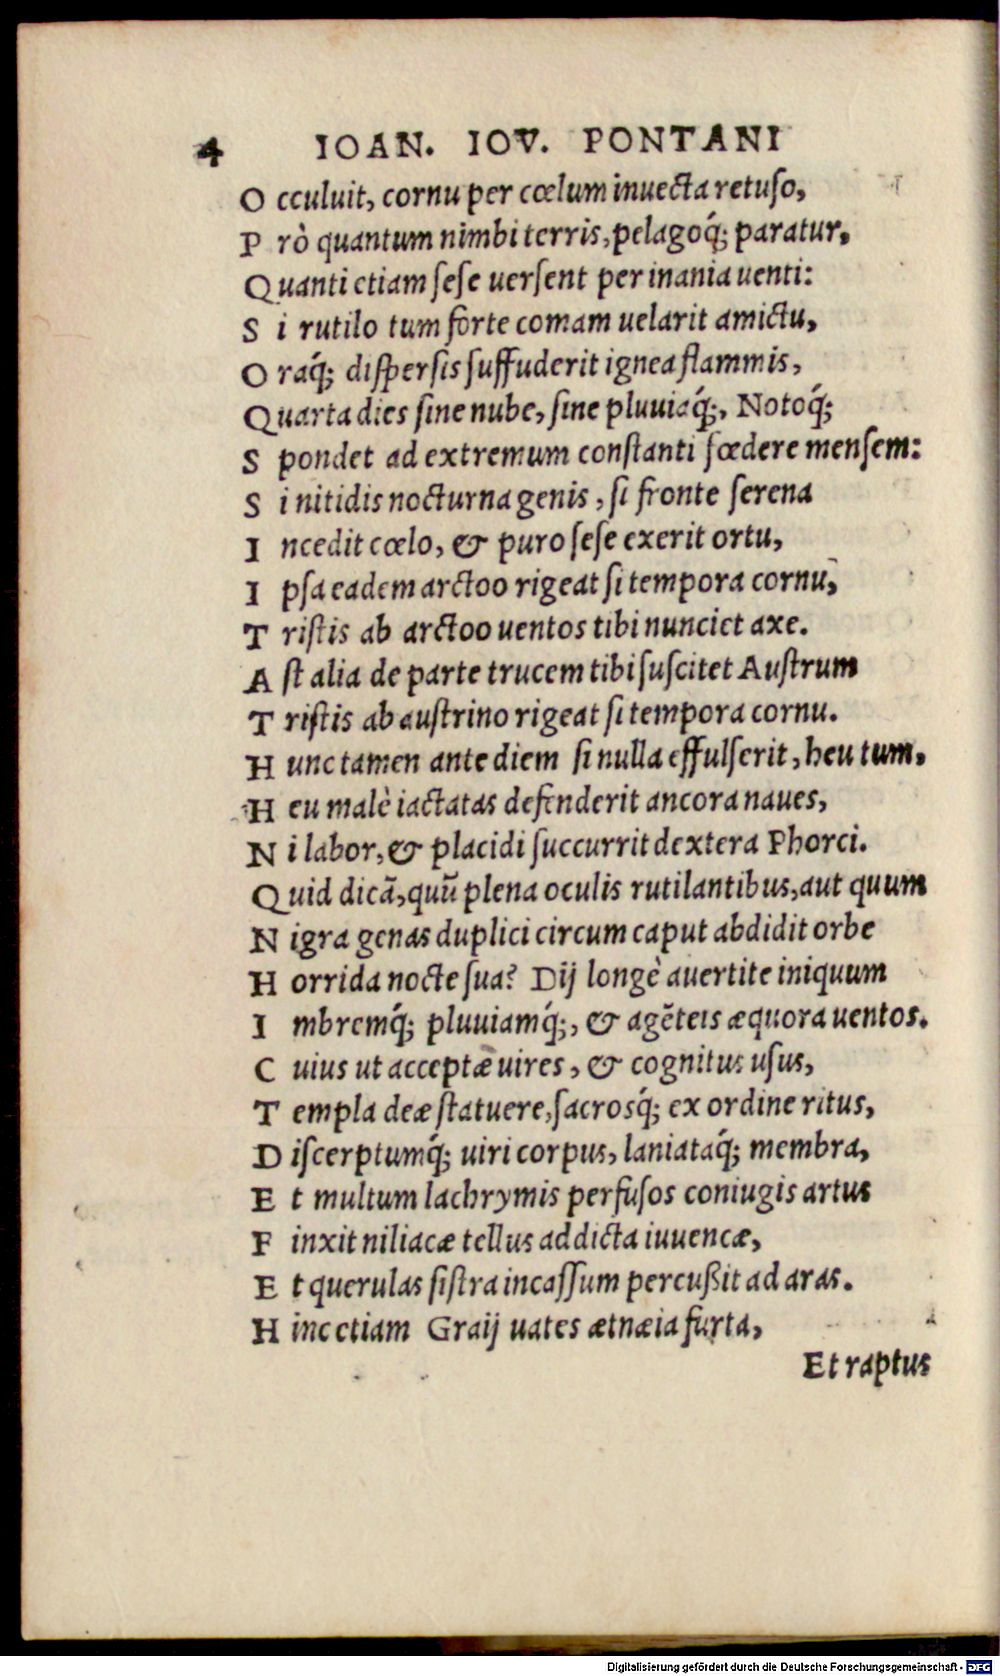 4 IOAN. IOV. PONTANI
O cculuit, cornu per cœlum inuecta retuſo,
P rò quantum nimbi terris, pelagoq́; paratur,
Q uanti etiam ſeſe uerſent per inania uenti:
S i rutilo tum forte comam uelarit amictu,
O raq́; diſperſis ſuffuderit ignea flammis,
Q uarta dies ſine nube, ſine pluuiaq́;, Notoq́;
S pondet ad extremum conſtanti fœdere menſem:
S i nitidis nocturna genis, ſi fronte ſerena
I ncedit cœlo, & puro ſeſe exerit ortu,
I pſa eadem arctoo rigeat ſi tempora cornu,
T riſtis ab arctoo uentos tibi nunciet axe.
A ſt alia de parte trucem tibi ſuſcitet Auſtrum
T riſtis ab auſtrino rigeat ſi tempora cornu.
H unc tamen ante diem ſi nulla effulſerit, heu tum,
H eu malè iactatas defenderit ancora naues,
N i labor, & placidi ſuccurrit dextera Phorci.
Q uid dicā, quū plena oculis rutilantibus, aut quum
N igra genas duplici circum caput abdidit orbe
H orrida nocte ſua? Dij longè auertite iniquum
I mbremq́; pluuiamq́;, & agẽteis æquora uentos.
C uius ut acceptæ uires, & cognitus uſus,
T empla deæ ſtatuere, ſacrosq́; ex ordine ritus,
D iſcerptumq́; uiri corpus, laniataq́; membra,
E t multum lachrymis perfuſos coniugis artus
F inxit niliacæ tellus addicta iuuencæ,
E t querulas ſiſtra incaſſum percußit ad aras.
H inc etiam Graij uates ætnæia furta,
Et raptus
Digitalisierung gefördert durch die Deutsche Forschungsgemeinschaft - DFG